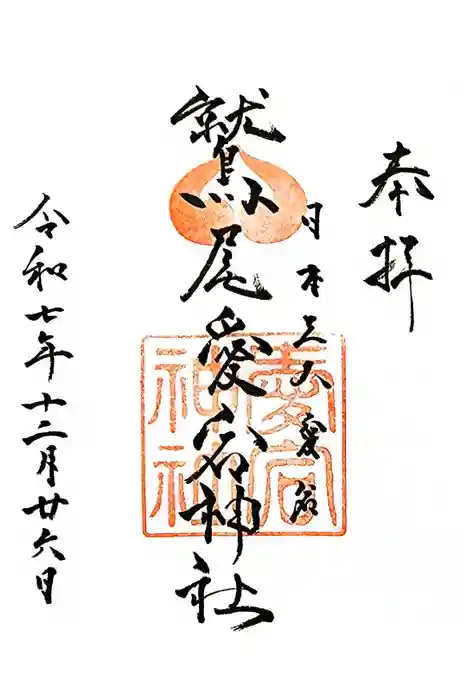 奉拝
日本三大愛宕
鷲尾愛宕神社
愛宕神社
令和七年十二月廿六日